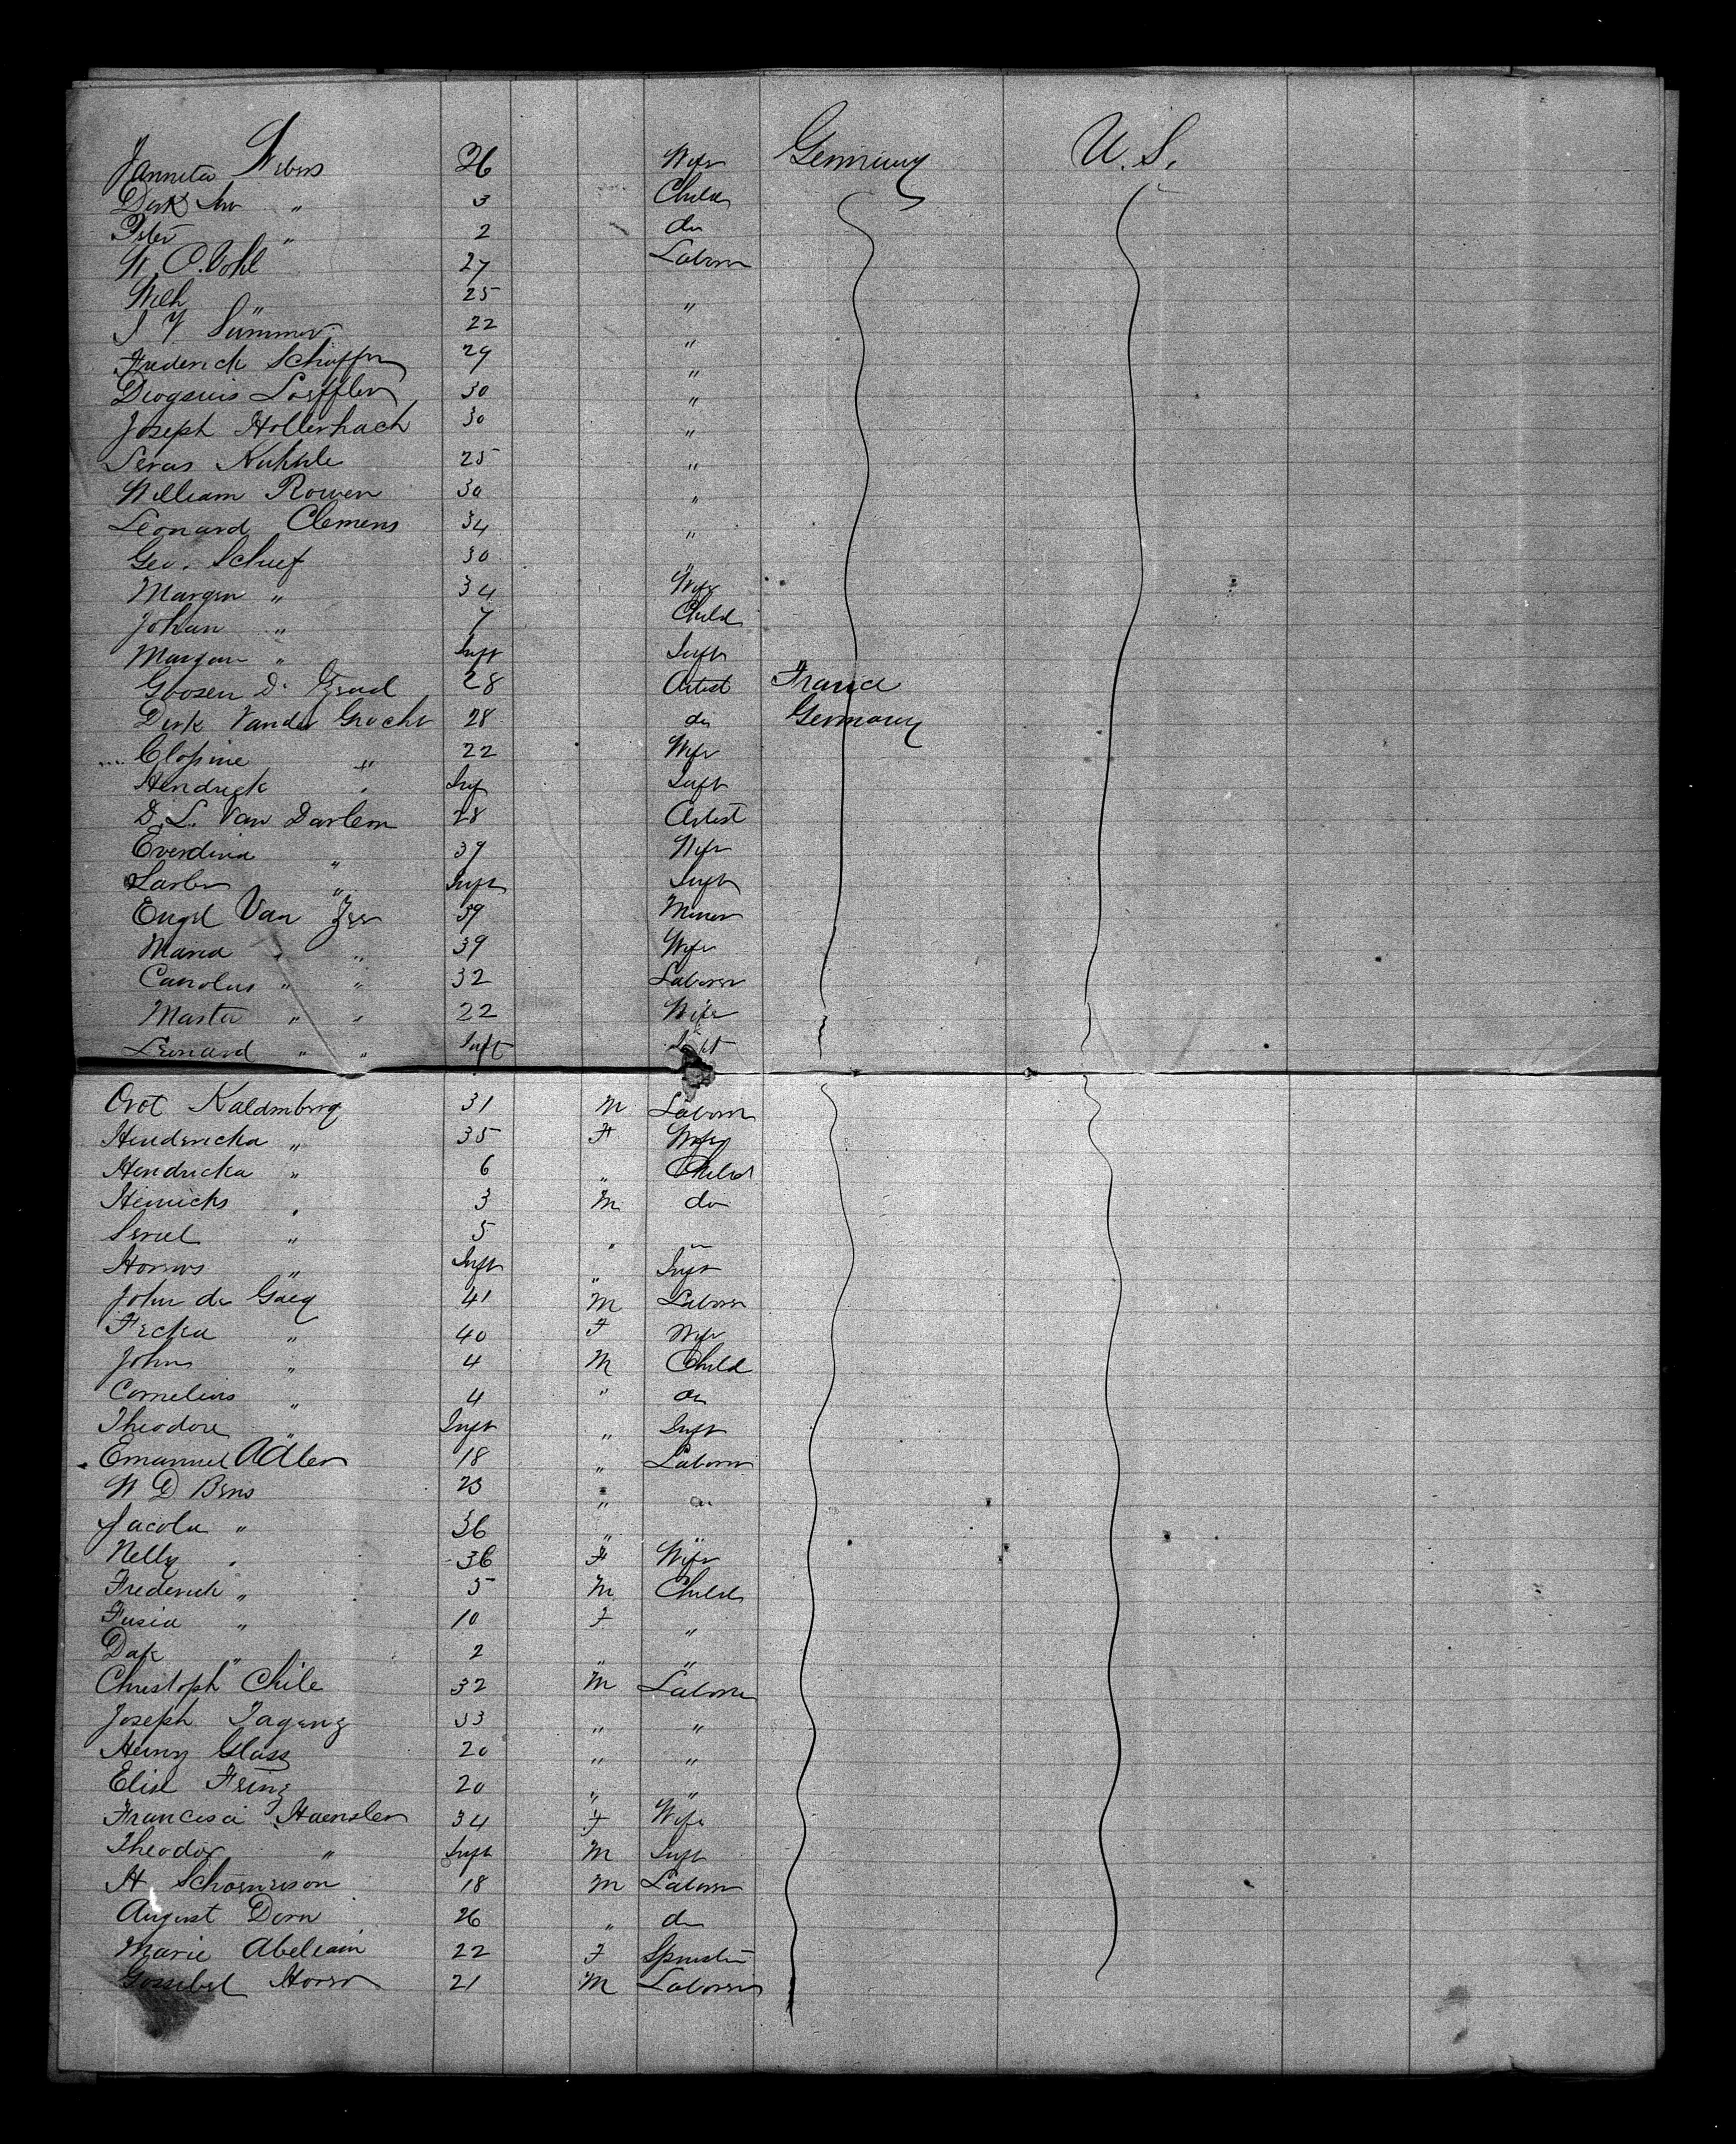 Janneta Webers 26 Wife Germany U.S.
Dirk " 3 Child
Peter " 2 do
W. C. Vohl 27 Laborer
Wilh " 25 "
J Y Sümmer 22 "
Frederick Schaffer 29 "
Diogenis Loeffler 30 "
Joseph Hollerbach 30 "
Servas Kuhnle 25 "
William Rowen 30 "
Leonard Clemens 34 "
Geo. Schief 30 "
Margen " 34 Wife
Johan " 7 Child
Margar " Inft Inft
Goosen D. 28 Artist France
Dirk Vander Grocht 28 do Germany
Clopine " 22 Wife
Hendrick " Inf Inft
D. L. Van Darlem 28 Artist
Everdina " 39 Wife
" Inft Inft
Engel Van Zee 39 Miner
Maria " " 39 Wife
Carolus " " 32 Laborer
Marta " " 22 Wife
Leonard " " Inft
Kaldenberg 31 M Laborer
Hendericka " 35 F Wife
Hendricka " 6 " Child
Heinicks " 3 M do
" 5 " "
" Inft " Inft
John de Gaeg 41 M Laborer
Fecka " 40 F Wife
John " 4 M Child
Cornelius " 4 " do
Theodore " Inft " Inft
Emanuel Adler 18 " Laborer
W D Bens 23 " do
Jacola " 36 " "
Nelly " 36 F Wife
Frederick " 5 M Child
Fusia " 10 F "
" 2 " "
Christoph Chile 32 M Laborer
Joseph Tagenz 33 " "
Henry Glass 20 " "
Elise Frinz 20 " "
Francisca Haensler 34 F Wife
Theodor " Inft M Inft
H Schoenerson 18 M Laborer
August Dorn 26 " do
Marie Abelein 22 F Spinster
21 M Laborer